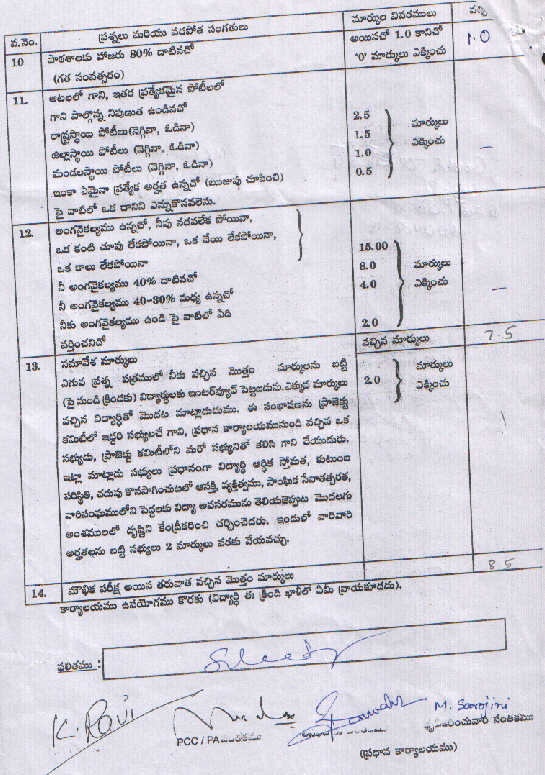 వ.నెం. ప్రశ్నలు మరియు వడపోత సంగతులు మార్కుల వివరములు వచ్చి
10 పాఠశాలకు హాజరు 80% దాటినచో అయినచో 1.0 కానిచో 1.0
(గత సంవత్సరం) '0' మార్కులు ఎక్కించు
11. ఆటలలో గాని, ఇతర ప్రత్యేకమైన పోటీలలో
గాని పాల్గొన్న నిపుణత ఉండినచో
రాష్ట్రస్థాయి పోటీలు(నెగ్గినా, ఓడినా) 2.5 మార్కులు
జిల్లాస్థాయి పోటీలు (నెగ్గినా, ఓడినా) 1.5 ఎక్కించు
మండలస్థాయి పోటీలు (నెగ్గినా, ఓడినా) 1.0 –
ఇంకా ఏమైనా ప్రత్యేక అర్హత ఉన్నచో (ఋజువు చూపించి) 0.5
పై వాటిలో ఒక దానిని ఎన్నుకొనవలెను.
12. అంగవైకల్యము ఉన్నచో, నీవు నడవలేక పోయినా,
ఒక కంటి చూపు లేకపోయినా, ఒక చేయి లేకపోయినా, 15.00
ఒక కాలు లేకపోయినా 8.0 మార్కులు
నీ అంగవైకల్యము 40% దాటినచో 4.0 ఎక్కించు
నీ అంగవైకల్యము 40-30% మధ్య ఉన్నచో –
నీకు అంగవైకల్యము ఉండి పై వాటిలో ఏది 2.0
వర్తించనిచో వచ్చిన మార్కులు 7.5
13. సమావేశ మార్కులు
ఎగువ ప్రశ్న పత్రములో నీకు వచ్చిన మొత్తం మార్కులను బట్టి 2.0 మార్కులు
(పై నుండి క్రిందకు) విద్యార్థులకు ఇంటర్వ్యూచ్ పెట్టబడును.ఎక్కువ మార్కులు ఎక్కించు
వచ్చిన విద్యార్థితో మొదట మాట్లాడుదుము. ఈ సంభాషణను ప్రాజెక్టు
కమిటీలో ఇద్దరి సభ్యులచే గాని, ప్రధాన కార్యాలయమునుండి వచ్చిన ఒక
సభ్యుడు, ప్రాజెక్టు కమిటీలోని మరో సభ్యునితో కలిసి గాని చేయుదురు.
ఇట్లా మాట్లాడు సభ్యులు ప్రధానంగా విద్యార్థి ఆర్థిక స్తోమత, కుటుంబ
పరిస్థితి, చదువు కొనసాగించుటలో ఆసక్తి, వ్యక్తిత్వము, సాంఘిక సేవాతత్పరత,
వారిసంఘములోని పెద్దలకు విద్యా అవసరమును తెలియజెప్పుట మొదలగు
అంశములలో దృష్టిని కేంద్రీకరించి చర్చించెదరు. ఇందులో వారివారి
అర్హతలను బట్టి సభ్యులు 2 మార్కులు వరకు వేయవచ్చు.
14. మౌఖిక పరీక్ష అయిన తరువాత వచ్చిన మొత్తం మార్కులు 8.5
కార్యాలయము ఉపయోగము కొరకు (విద్యార్థి ఈ క్రింది ఖాళీలో ఏమీ వ్రాయకూడదు).
ఫలితము :
K. Ravi M. Sarojini
PCC / PA
(ప్రధాన కార్యాలయము)